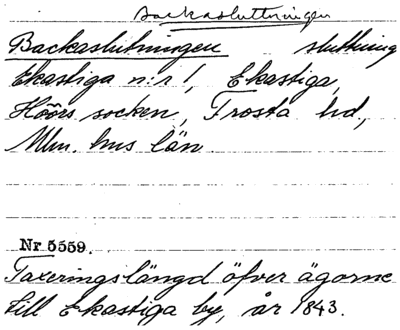 Backasluttningen
Backaslutningen sluttning
Ekastiga n:r 1, Ekastiga,
Höörs socken, Frosta hd.,
Mlm. hus län.
Nr 5559.
Taxeringslängd öfver ägorne
till Ekastiga by, år 1843.